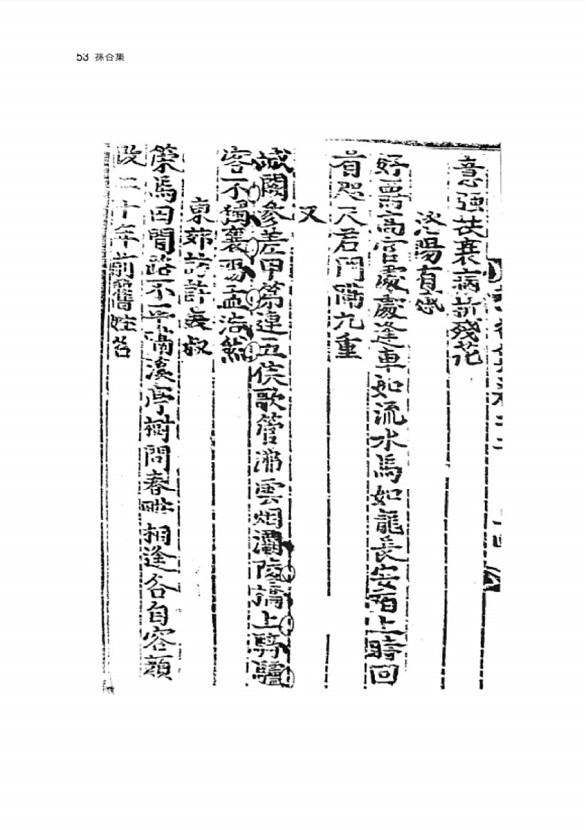 53 孫合集
意強扶衰病折殘花
洛陽有感
好爵高官處處逢車如流水馬如龍長安陌上時回
首咫尺君門隔九重
又
城闕參差甲第連五侯歌管沸雲烟灞陵橋上騎驢
客不獨襄陽孟浩然
東郊訪許美叔
策馬田間路不平隔溪樹問春畊相逢各自容顔
改二十年前舊姓名